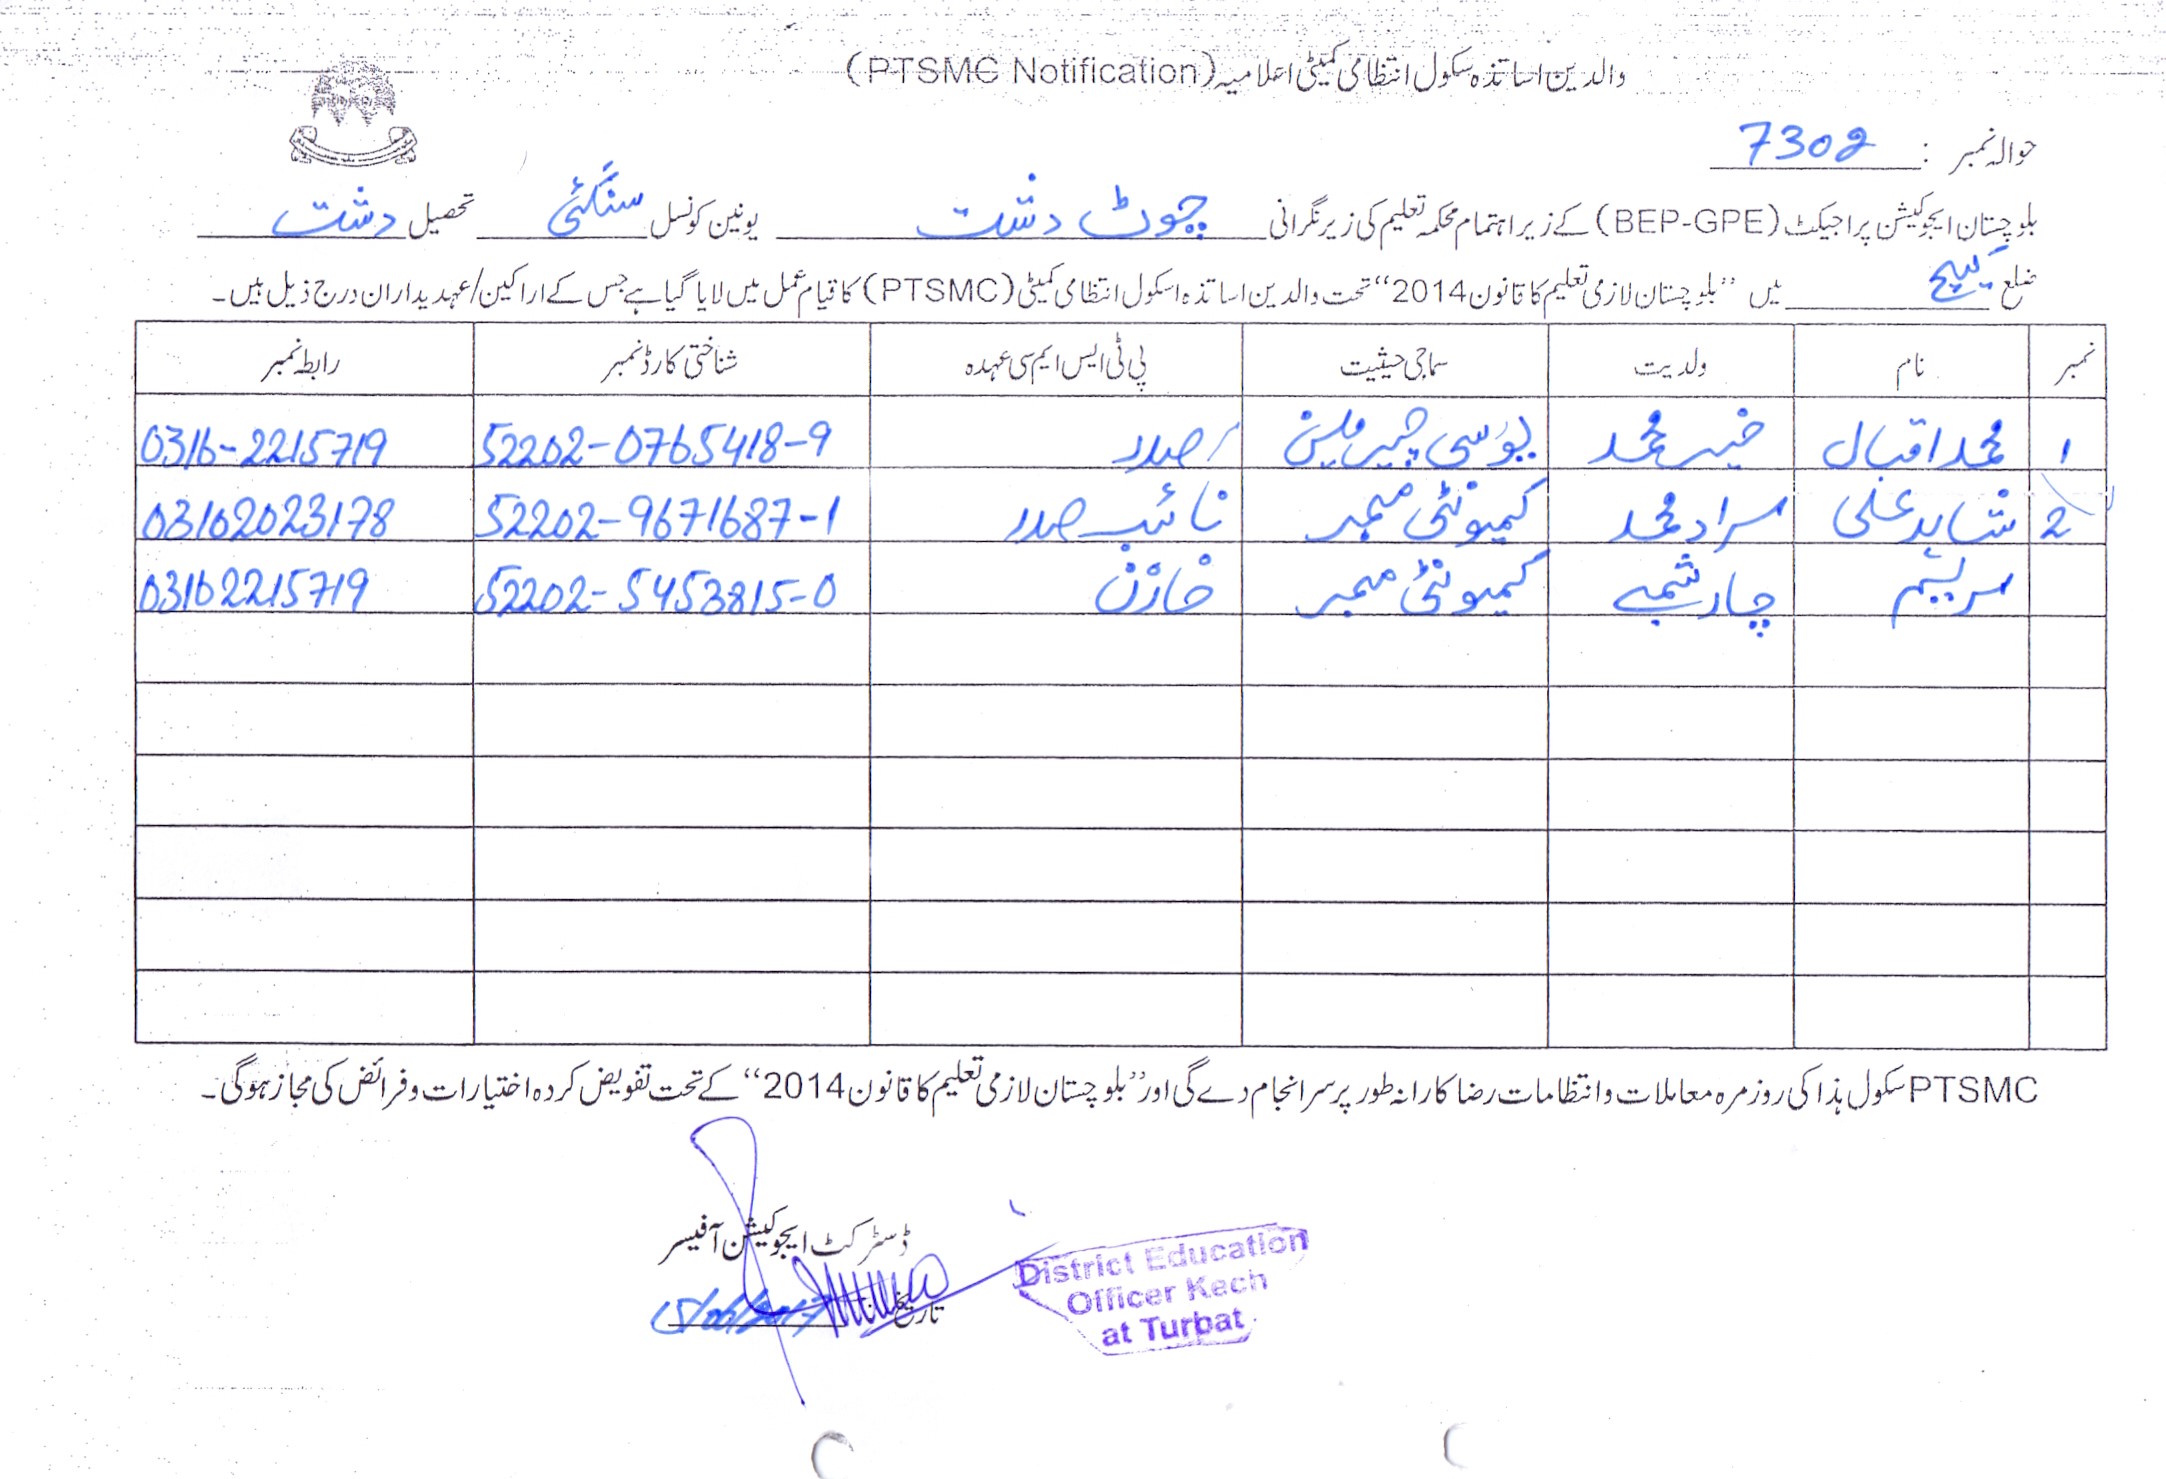 والدین اساتذہ سکول انتظامی کمیٹی اعلامیہ (PTSMC Notification)
حوالہ نمبر : 7302
بلوچستان ایجوکیشن پراجیکٹ (BEP-GPE) کے زیر اہتمام محکمہ تعلیم کی زیر نگرانی چوٹ دشت یونین کونسل سنگئی تحصیل دشت
ضلع کیچ میں "بلوچستان لازمی تعلیم کا قانون 2014" تحت والدین اساتذہ اسکول انتظامی کمیٹی (PTSMC) کا قیام عمل میں لایا گیا ہے جس کے اراکین/عہدیداران درج ذیل ہیں۔
نمبر نام ولدیت سماجی حیثیت پی ٹی ایس ایم سی عہدہ شناختی کارڈ نمبر رابطہ نمبر
1 محمد اقبال خیر محمد یو سی چیرمین صدر 52202-0765418-9 0316-2215719
2 شاہد علی مراد محمد کمیونٹی ممبر نائب صدر 52202-9671687-1 03102023178
مریم چارشمبے کمیونٹی ممبر خازن 52202-5453815-0 03162215719
PTSMC سکول ہذا کی روزمرہ معاملات و انتظامات رضا کارانہ طور پر سرانجام دے گی اور "بلوچستان لازمی تعلیم کا قانون 2014" کے تحت تفویض کردہ اختیارات و فرائض کی مجاز ہوگی۔
ڈسٹرکٹ ایجوکیشن آفیسر
تاریخ:
District Education
Officer Kech
at Turbat